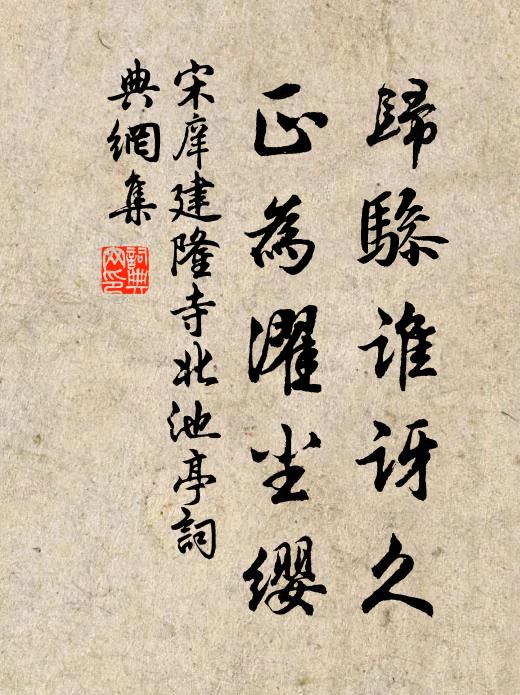 歸驂誰訝久
正為濯尘纓
宋庠建隆寺北池亭詞
典網集
詞典